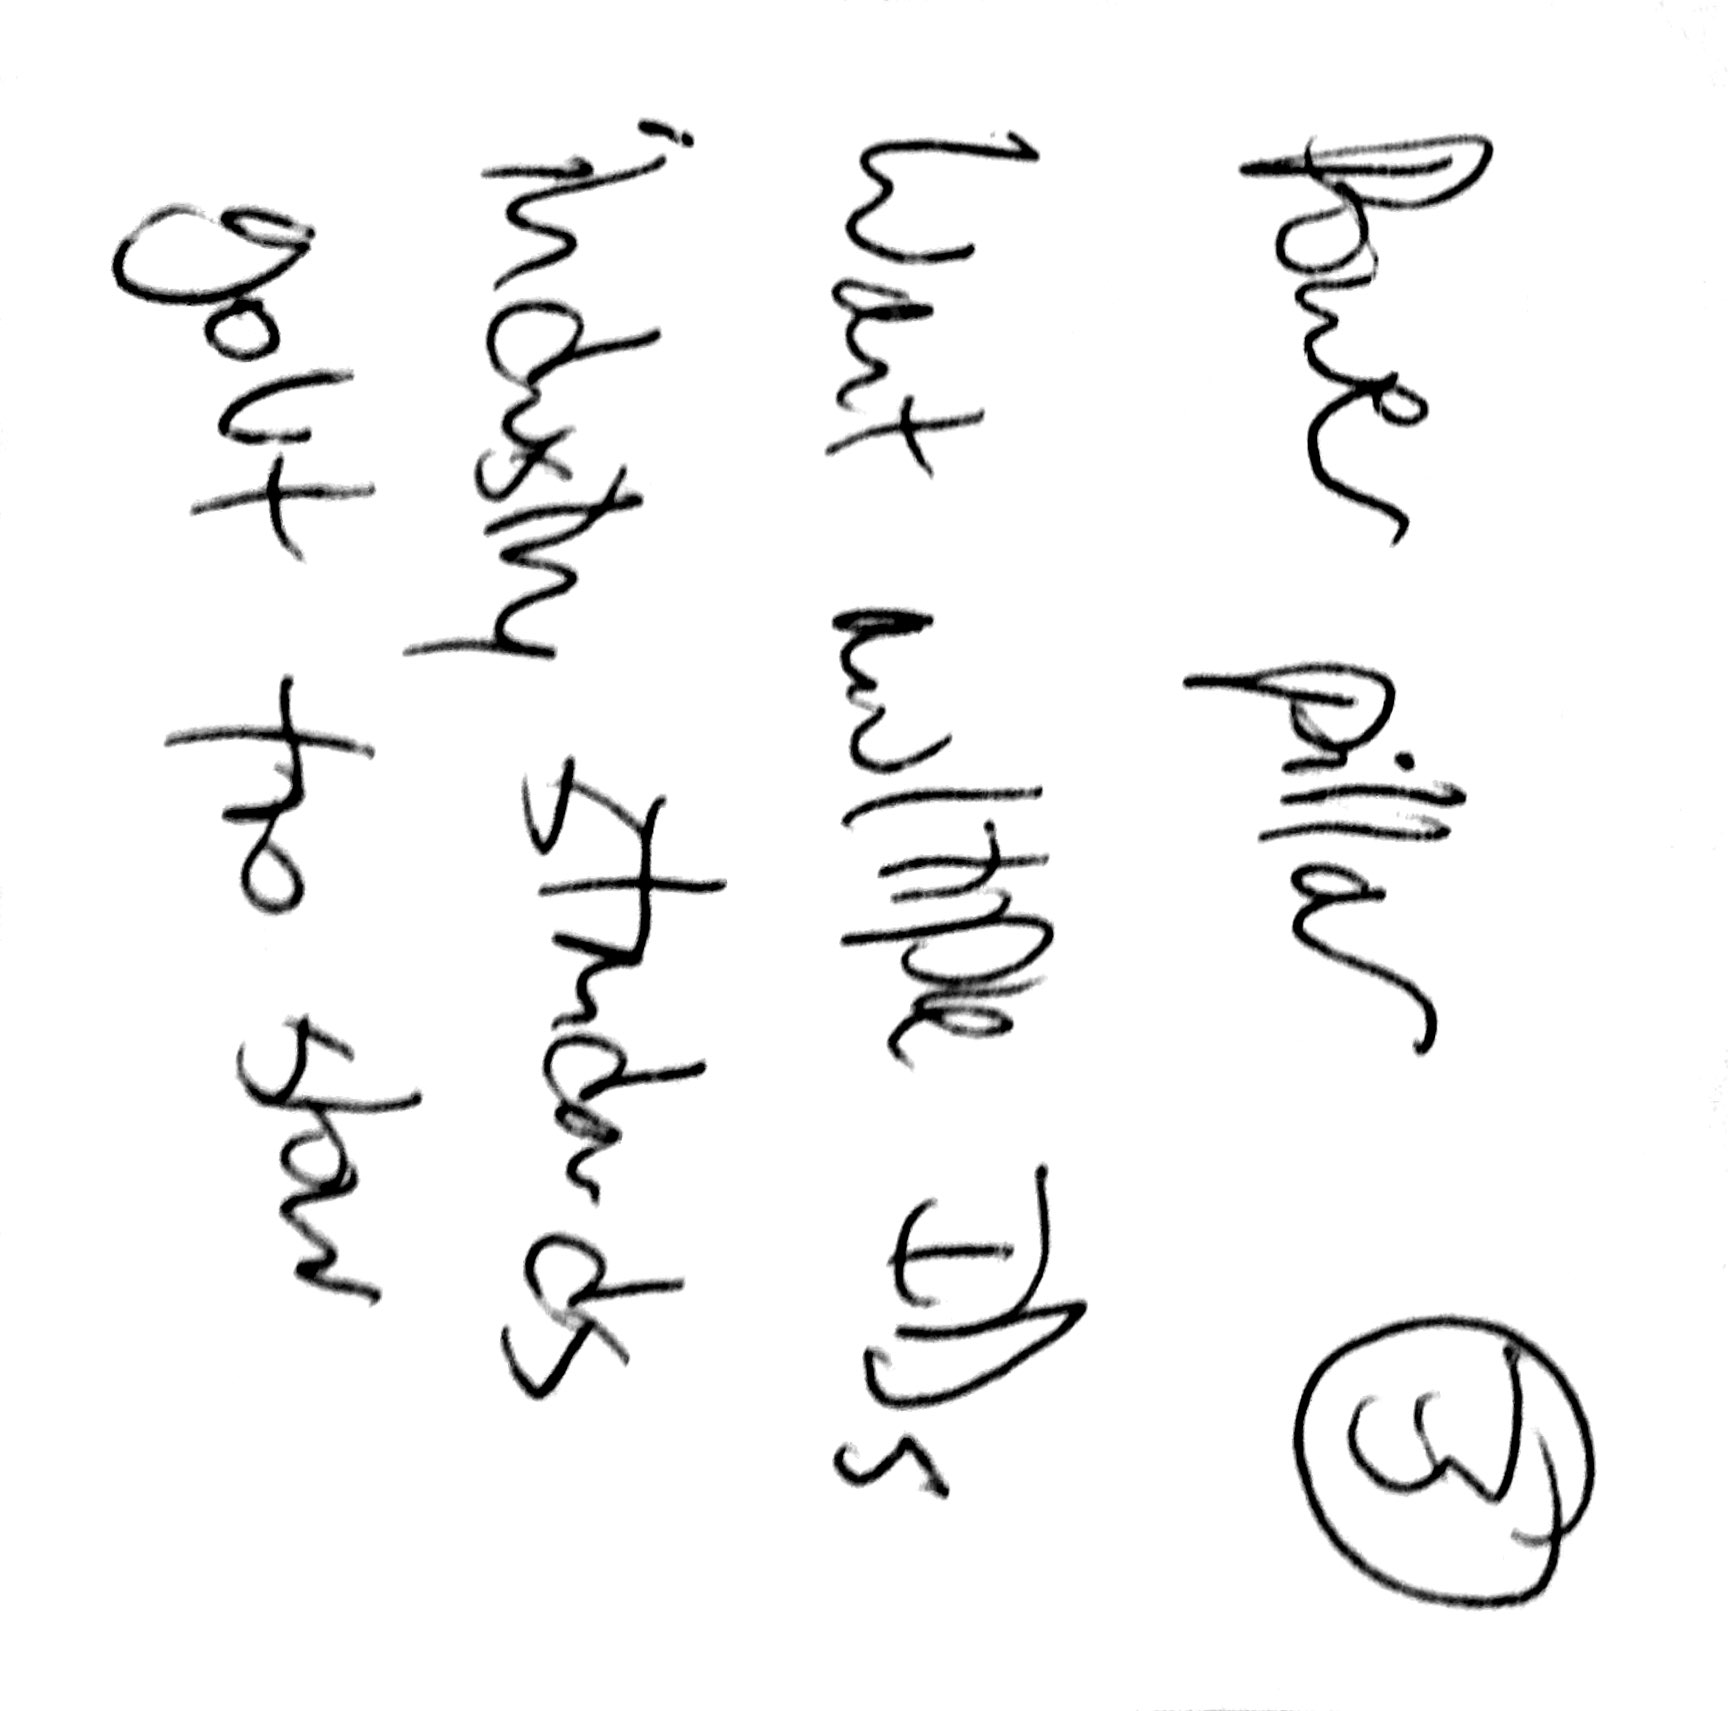 Power pillar 3
Want multiple IDs
industry standards
gout the show